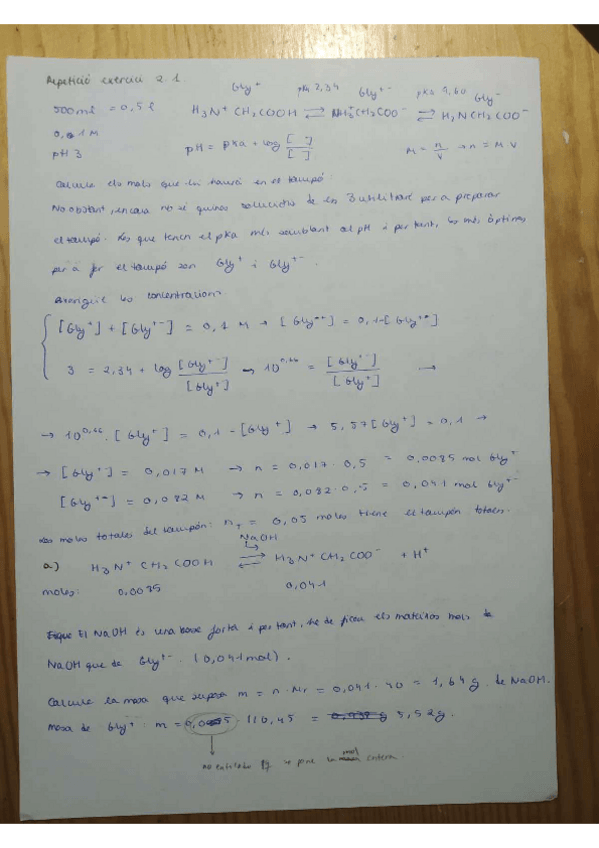 Repetició exercici 2 1.
Gly⁺ pKa 2,34 Gly⁺⁻ pKa 9,60 Gly⁻
500ml = 0,5 l H₃N⁺ CH₂COOH ⇌ NH₃⁺CH₂COO⁻ ⇌ H₂NCH₂COO⁻
0,1 M
pH 3 pH = pKa + log [ ⁻] / [ ] M = n/V → n = M·V
Calcule els mols que hi haurà en el tampó:
No obstant, encara no sé quines solucions de les 3 utilitzaré per a preparar
el tampó. Les que tenen el pKa més semblant al pH i per tant, les més òptimes
per a fer el tampó són Gly⁺ i Gly⁺⁻.
Averigüe les concentracions
[Gly⁺] + [Gly⁺⁻] = 0,1 M → [Gly⁺⁻] = 0,1-[Gly⁺]
3 = 2,34 + log [Gly⁺⁻] / [Gly⁺] → 10^0,66 = [Gly⁺⁻] / [Gly⁺] →
→ 10^0,66 · [Gly⁺] = 0,1 - [Gly⁺] → 5,57[Gly⁺] = 0,1 →
→ [Gly⁺] = 0,017 M → n = 0,017 · 0,5 = 0,0085 mol Gly⁺
[Gly⁺⁻] = 0,082 M → n = 0,082 · 0,5 = 0,041 mol Gly⁺⁻
Los moles totales del tampón: n_T = 0,05 moles tiene el tampón totales.
NaOH
a) H₃N⁺ CH₂ COOH ⇌ H₃N⁺ CH₂ COO⁻ + H⁺
moles: 0,0085 0,041
El NaOH és una base forta i per tant, he de ficar els mateixos mols de
NaOH que de Gly⁺⁻ (0,041mol).
Calcule la masa que supon m = n · Mr = 0,041 · 40 = 1,64 g de NaOH.
masa de Gly⁺: m = 0,05 · 110,45 = 5,52g.
no entiendo pq se pone la mol entera.